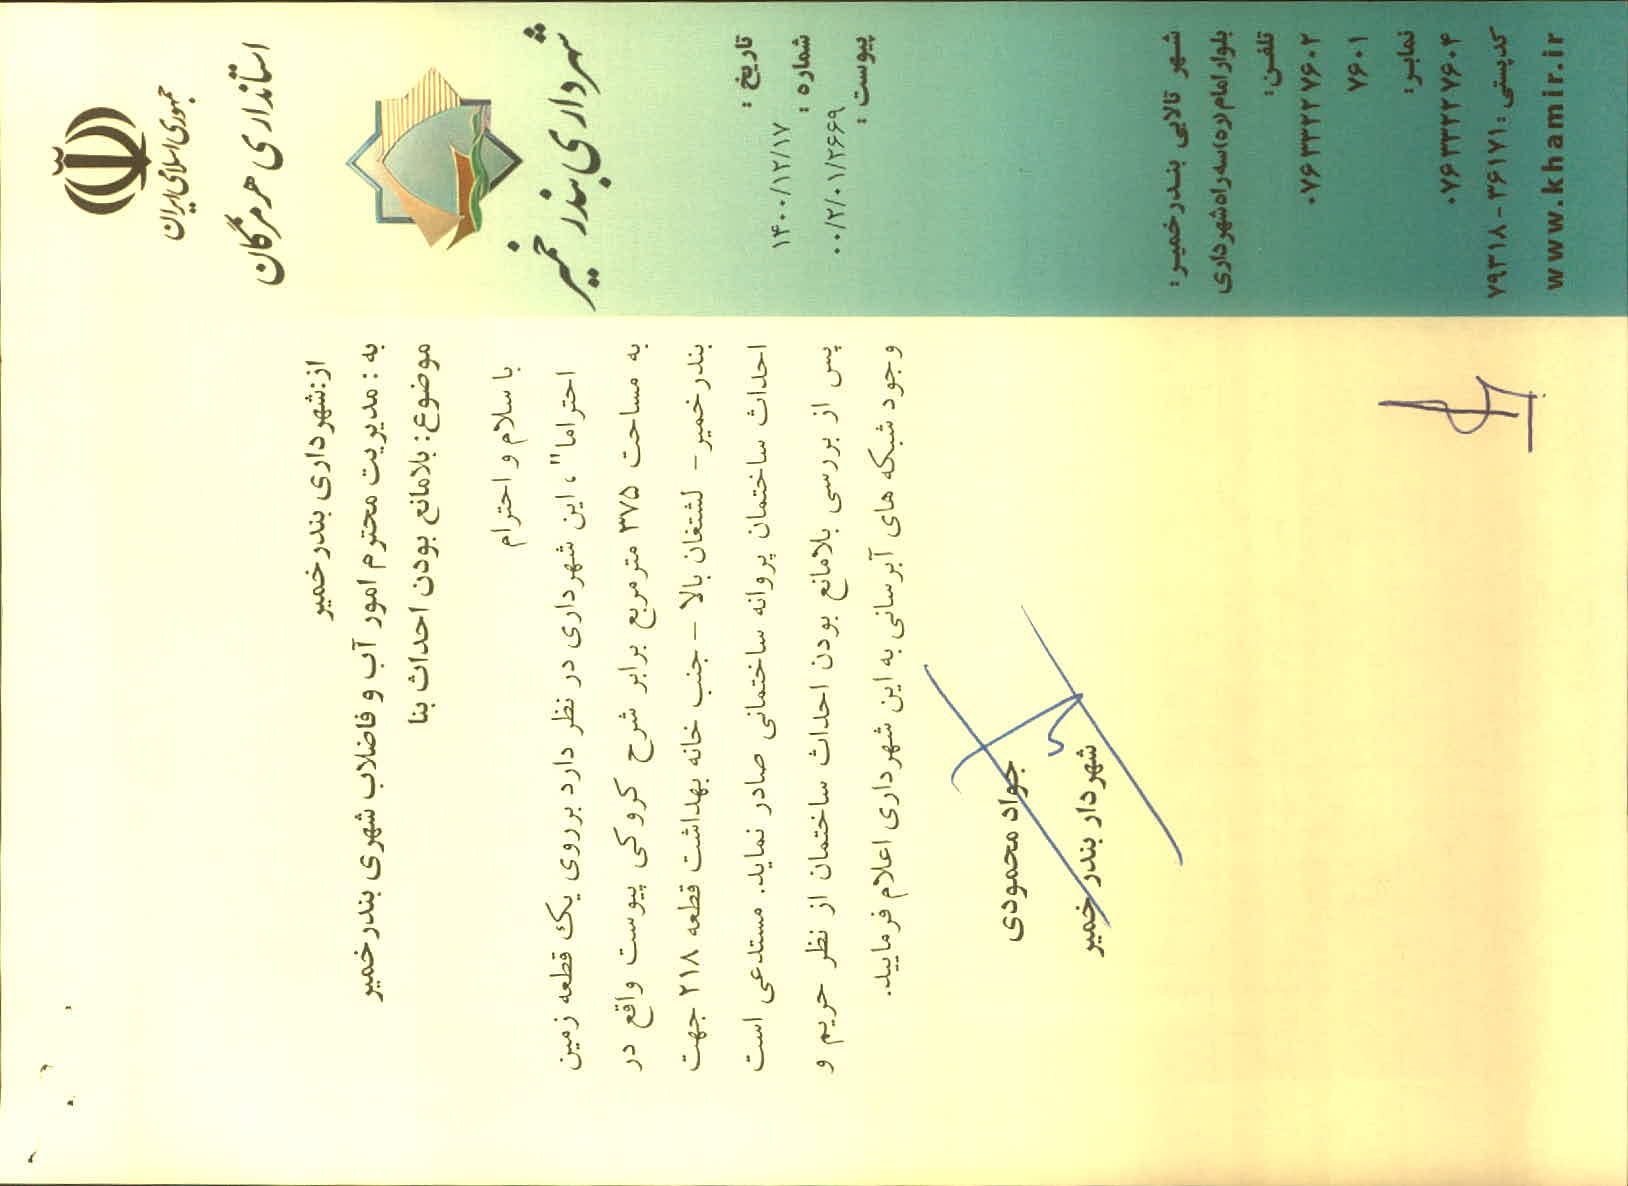 جمهوری اسلامی ایران
استانداری هرمزگان
شهرداری بندر خمیر
تاریخ :
۱۴۰۰/۱۲/۱۷
شماره :
۰۰/۲/۰۱/۲۶۶۹
پیوست :
شهر تالابی بندرخمیر:
بلوار امام(ره)سه راه شهرداری
تلفن:
۰۷۶۳۳۲۲۷۶۰۲
۷۶۰۱
نمابر:
۰۷۶۳۳۲۲۷۶۰۴
کدپستی: ۳۶۱۷۱-۷۹۳۱۸
www.khamir.ir
از:شهرداری بندرخمیر
به : مدیریت محترم امور آب و فاضلاب شهری بندرخمیر
موضوع: بلامانع بودن احداث بنا
با سلام و احترام
احتراما" ، این شهرداری در نظر دارد برروی یک قطعه زمین
به مساحت ۳۷۵ مترمربع برابر شرح کروکی پیوست واقع در
بندرخمیر- لشتغان بالا -جنب خانه بهداشت قطعه ۲۱۸ جهت
احداث ساختمان پروانه ساختمانی صادر نماید. مستدعی است
پس از بررسی بلامانع بودن احداث ساختمان از نظر حریم و
وجود شبکه های آبرسانی به این شهرداری اعلام فرمایید.
جواد محمودی
شهردار بندر خمیر